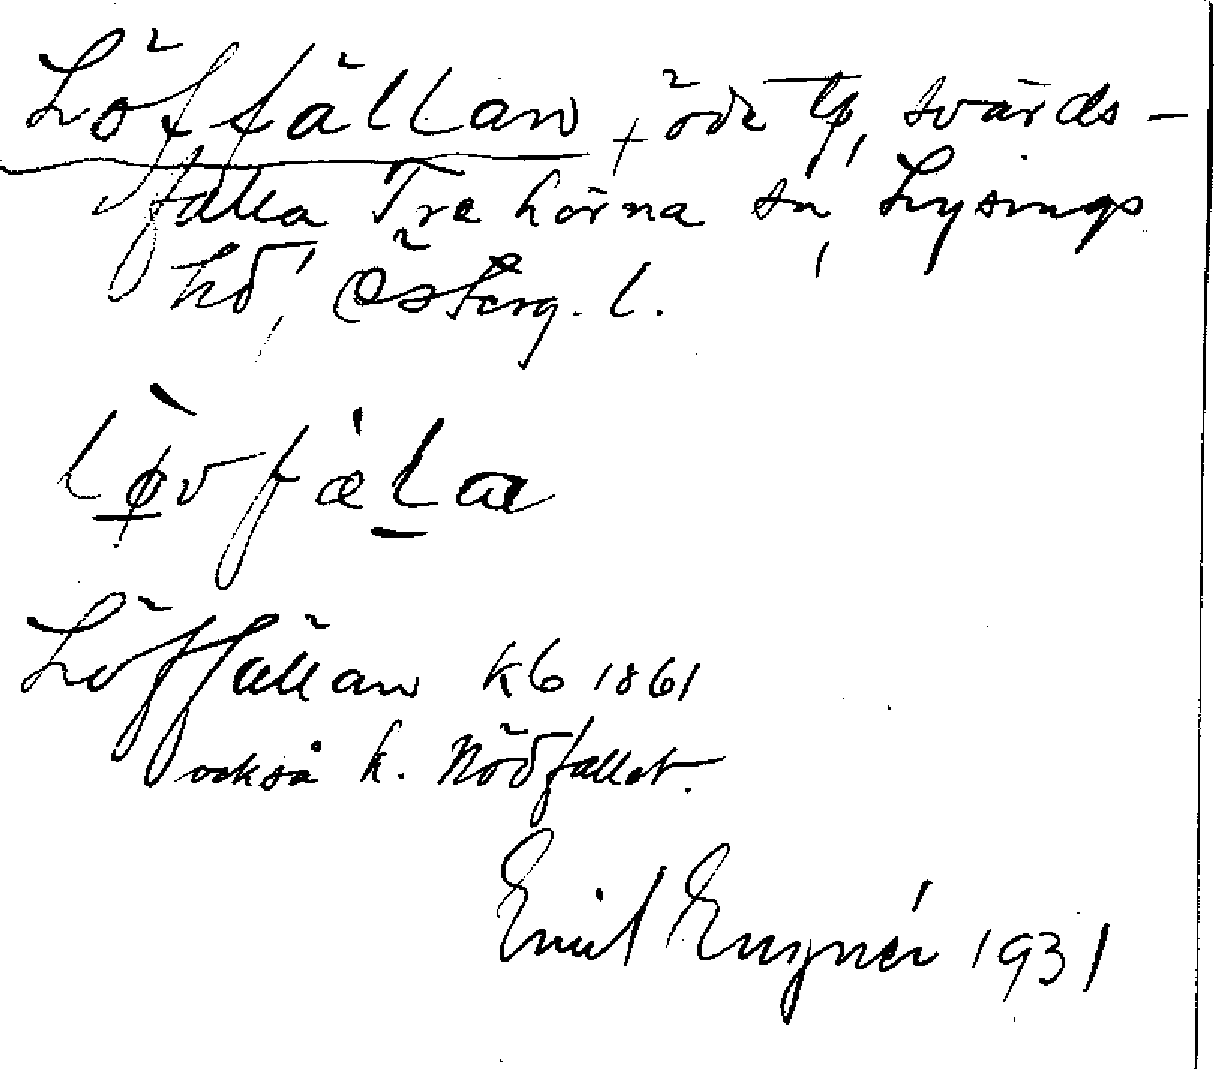 Löffällan, öde tp, Svärds-
fälla Trehörna sn, Lysings
hd, Österg. l.
lø̀vfæ̀la
Löffällan kb 1861
också k. Nödfallet.
Emil Eugnér 1931